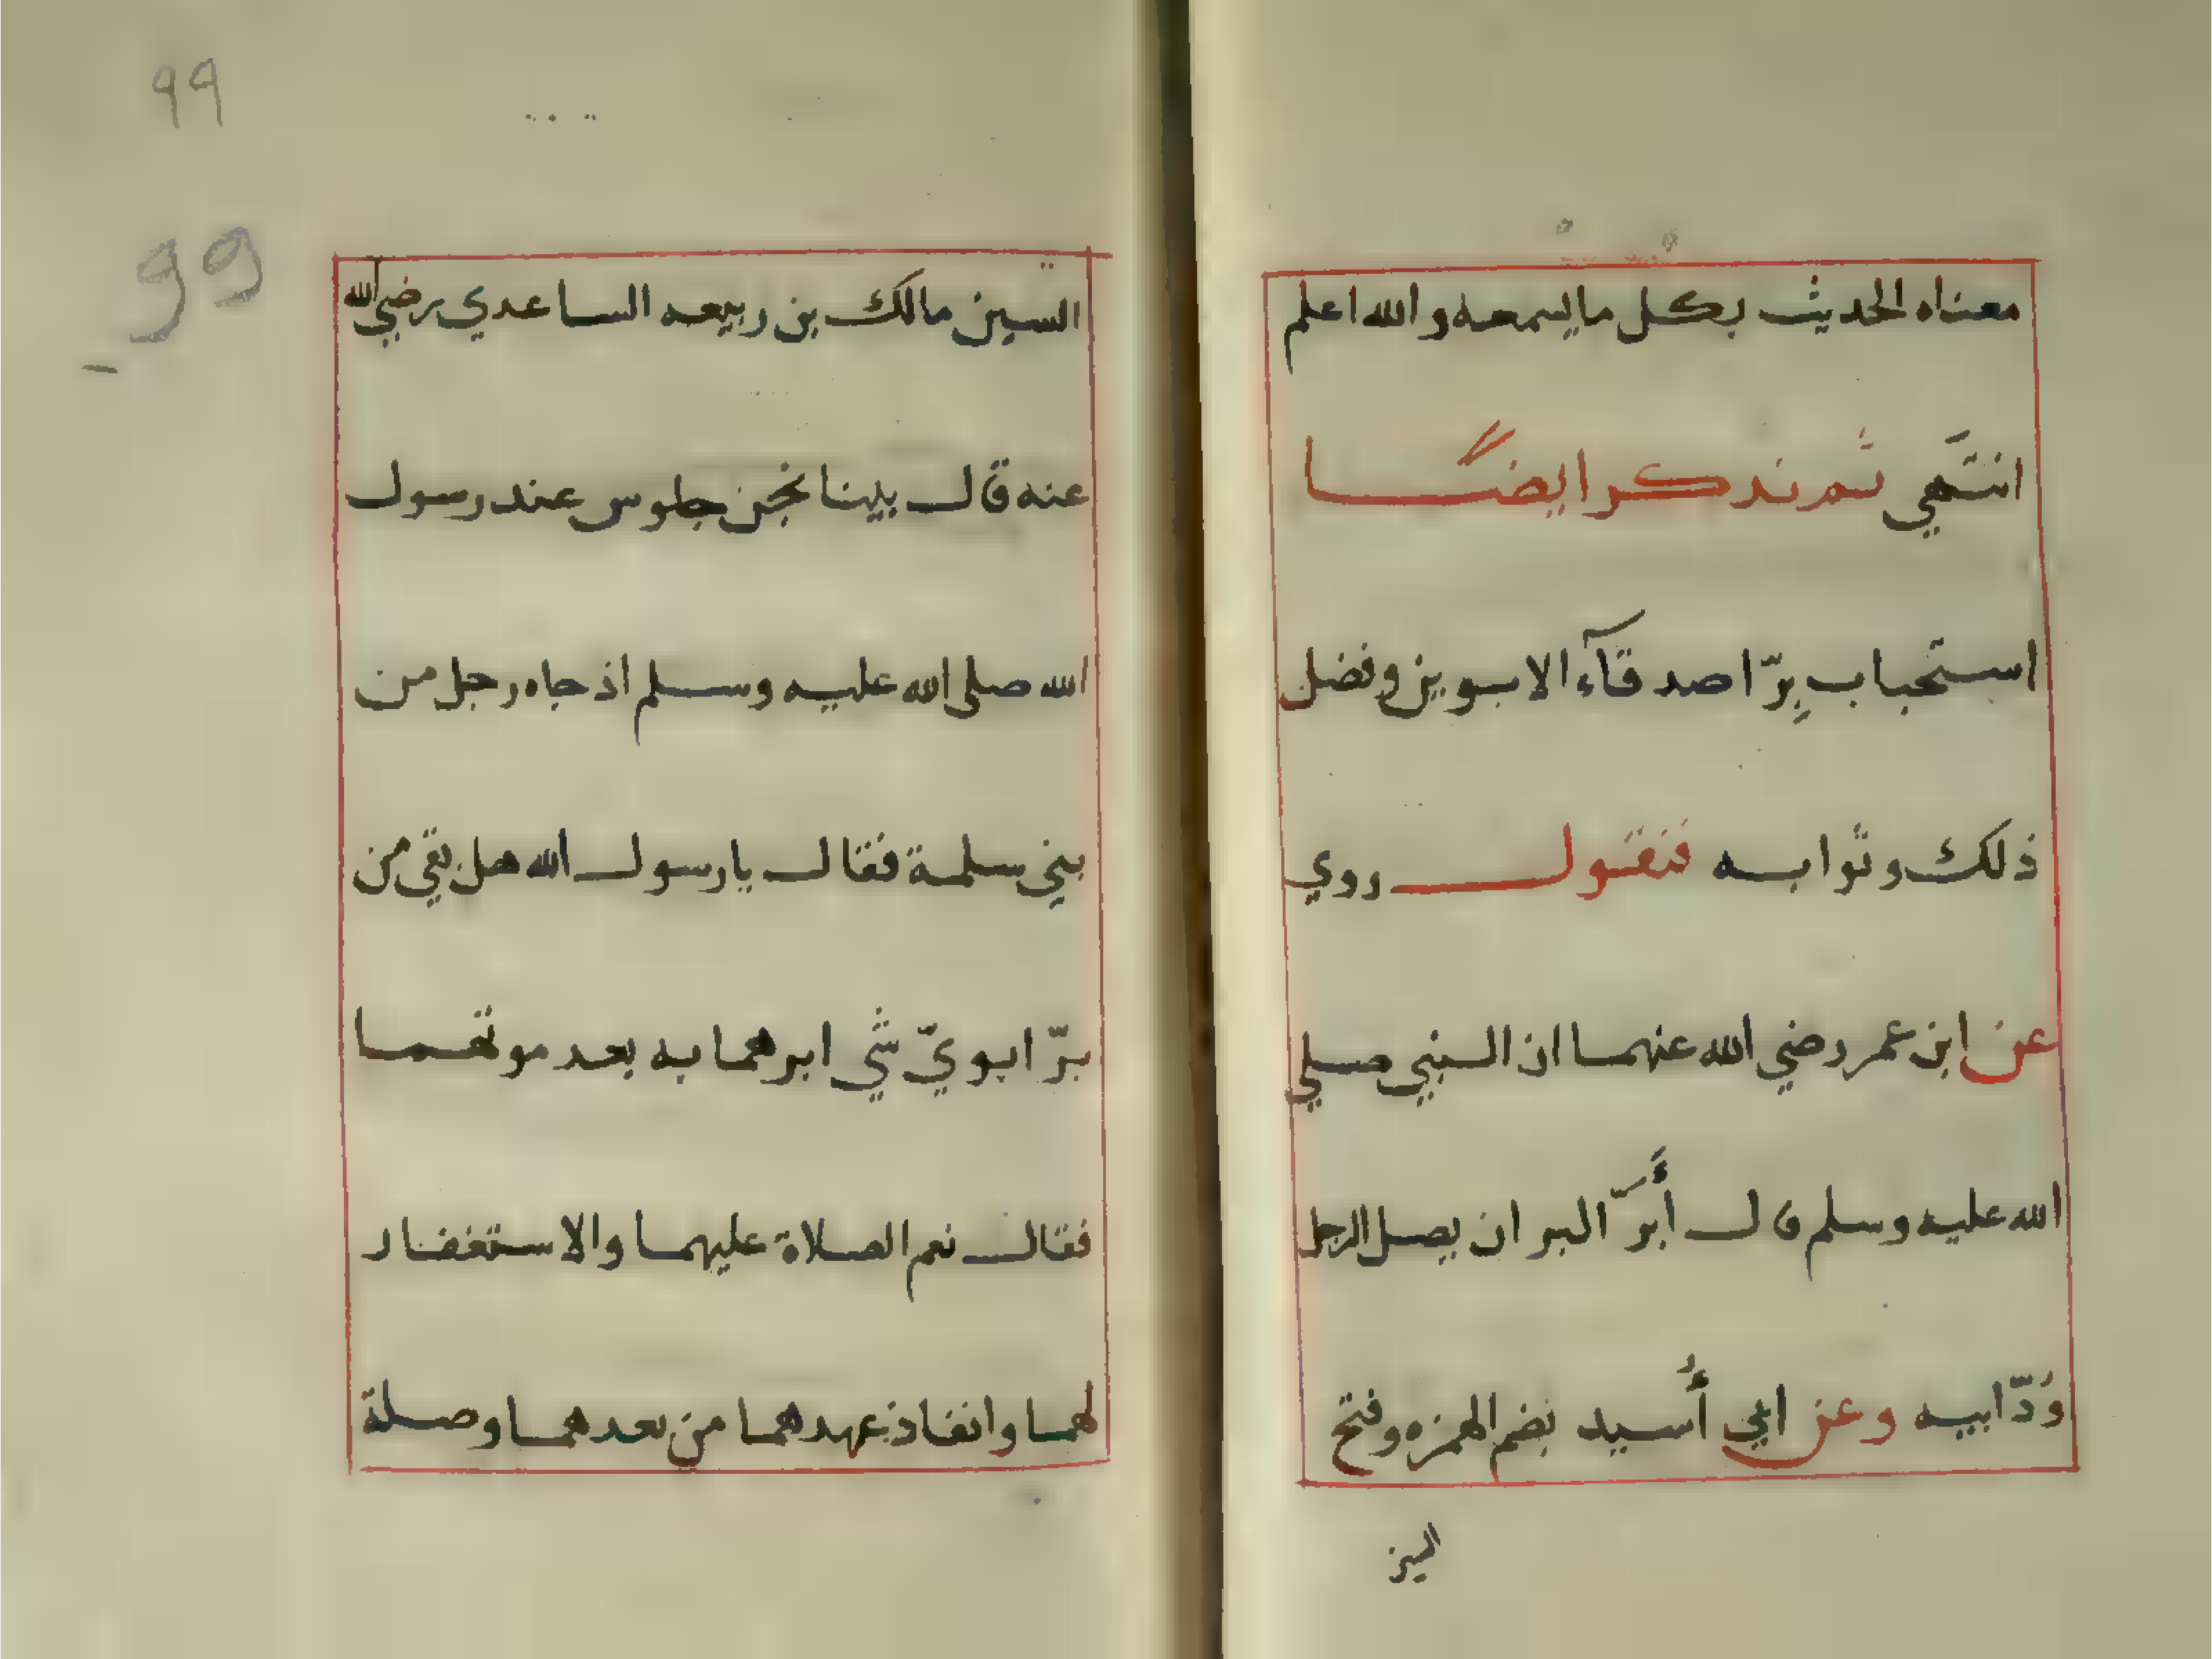 معناه الحديث بكل ما يسمعه والله اعلم
انتَهي ثم نذكر ايضًا
استحباب بِرّ اصدقآء الابوين وفضل
ذلك وثوابه فنقول روي
عن ابن عمر رضي الله عنهما ان النبي صلي
الله عليه وسلم قال أَبَرّ البر ان يصل الرجل
وُدّ ابيه وعن ابي أُسيد بضم الهمزه وفتح
السين
٩٩
99
السّين مالك بن ربيعه الساعدي رضي الله
عنه قال بينا نحن جلوس عند رسول
الله صلي الله عليه وسلم اذ جاه رجل من
بني سلمة فقال يارسول الله هل بقي من
برّ ابويّ شي ابرهما به بعد موتهما
فقال نعم الصلاة عليهما والاستغفار
لهما وانفاذ عهدهما من بعدهما وصلة